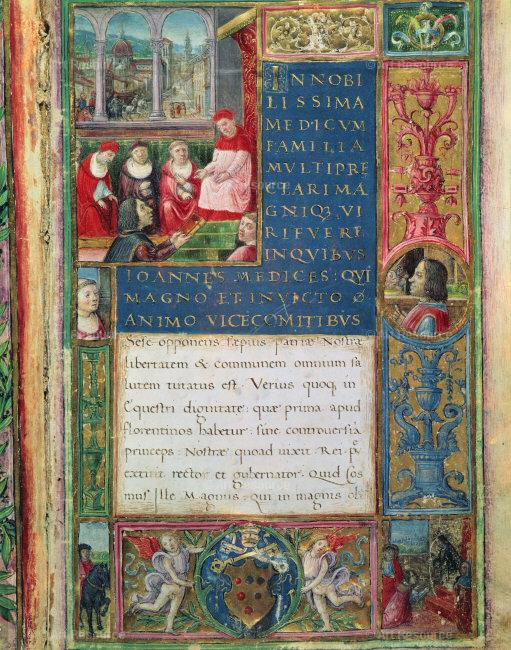 INNOBI
LISSIMA
MEDICVM
FAMILIA
MVLTIPRĘ
CLARI MA
GNIQƷ VI
RI FVERE
IN QVIBVS
IOANNES MEDICES: QVI
MAGNO ET INVICTO
ANIMO VICECOMITIBVS
Sese opponens sæpius patriæ Nostræ
libertatem & communem omnium sa
lutem tutatus est. Verius quoq; in
Equestri dignitate: quæ prima apud
florentinos habetur: sine controversia
princeps: Nostræ quoad vixit Rei p.
extitit rector et gubernator. Quid Cos
mus Ille Magnus: qui in magnis ob